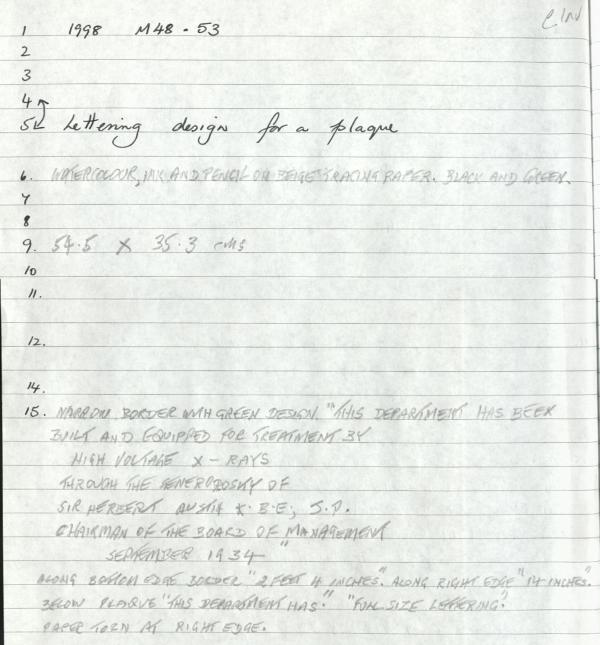 e INV
1 1998 M48-53
2
3
4
5 Lettering design for a plaque
6. WATERCOLOUR, INK AND PENCIL ON BEIGE TRACING PAPER. BLACK AND GREEN.
7
8
9. 54.5 X 35.3 cms
10
11.
12.
14.
15. NARROW BORDER WITH GREEN DESIGN. "THIS DEPARTMENT HAS BEEN
BUILT AND EQUIPPED FOR TREATMENT BY
HIGH VOLTAGE X-RAYS
THROUGH THE GENEROSITY OF
SIR HERBERT AUSTIN K.B.E; J.P.
CHAIRMAN OF THE BOARD OF MANAGEMENT
SEPTEMBER 1934"
ALONG BOTTOM EDGE BORDER "2 FEET 4 INCHES". ALONG RIGHT EDGE "14 INCHES".
BELOW PLAQUE "THIS DEPARTMENT HAS". "FULL SIZE LETTERING".
PAPER TORN AT RIGHT EDGE.